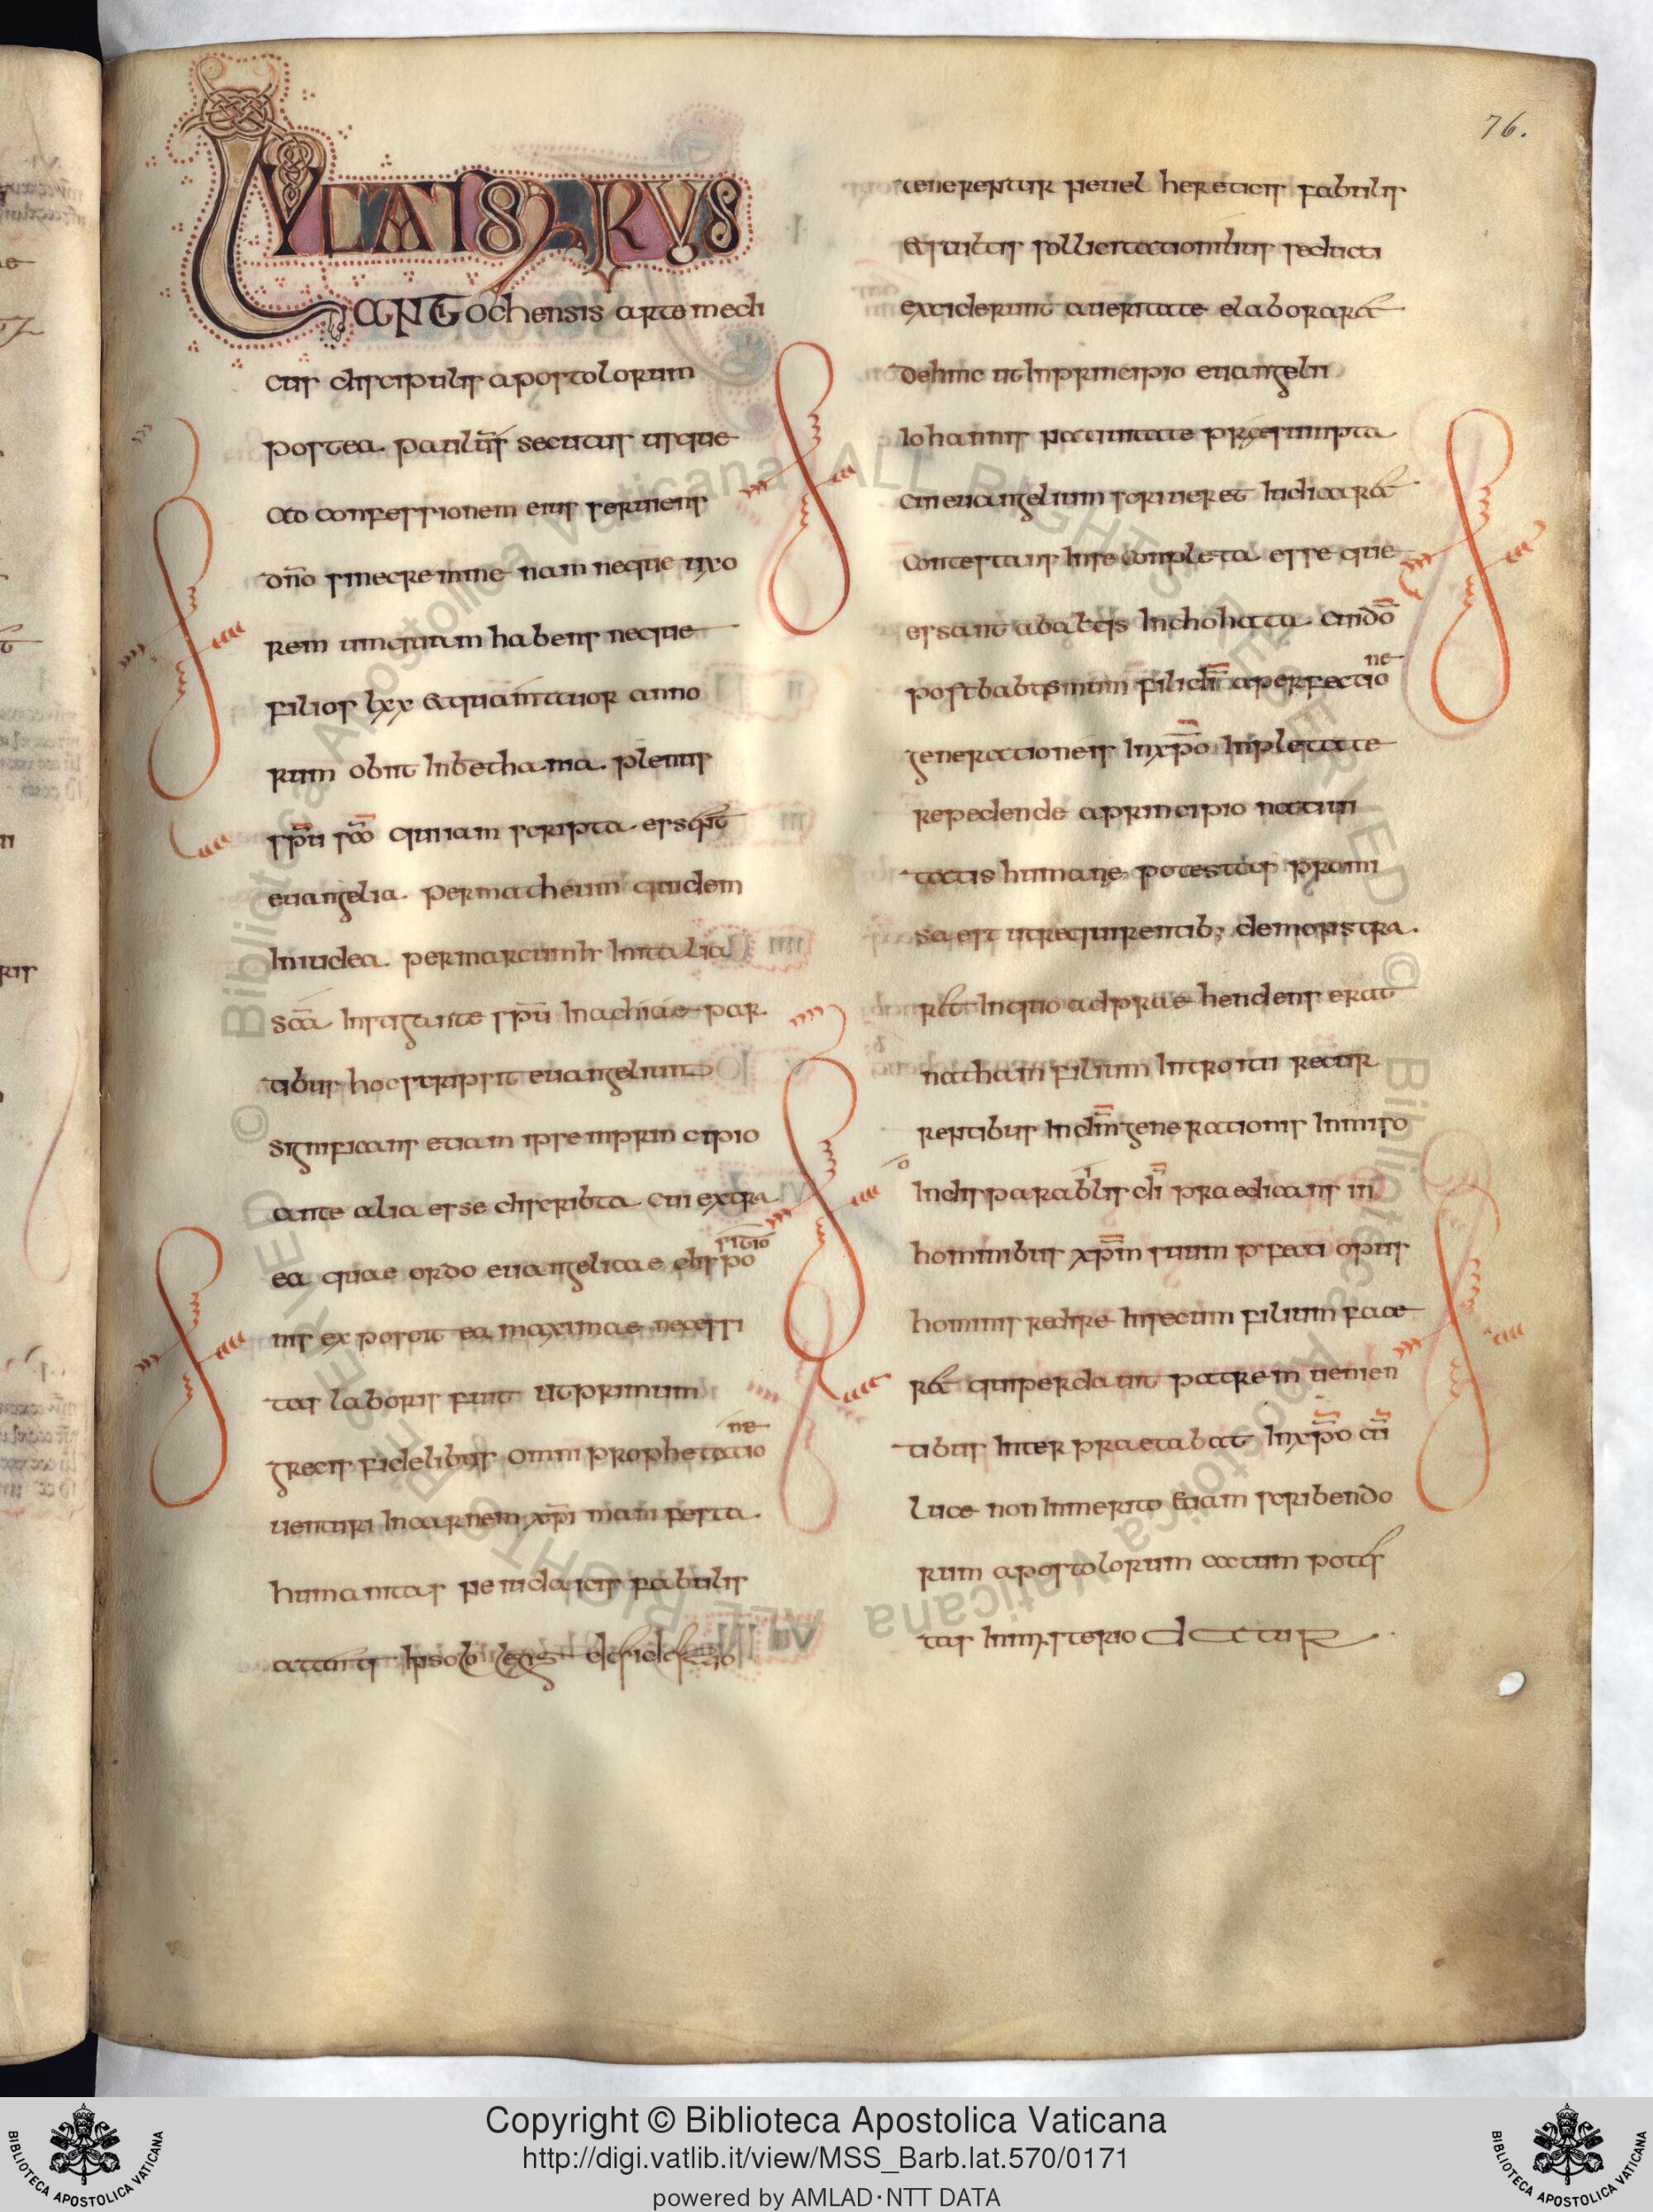 76.
LUCAS SYRUS
ANTIochensis arte medi
cus discipulis apostolorum
postea paulūs secutus usque
ad confessionem eius serviens
dn̄o sinecremine nam neque uxo
rem umquam habens neque
filios lxx &quattuor anno
rum obiit In bethania plenus
sp̄u sc̄o qui iam scripta essent
euangelia. per matheum quidem
In iudea. per marcum In italia
sc̄a Instigante sp̄u In achiae par
tibus hoc scripsit euangelium
significans etiam ipse in principio
ante alia esse discribta cui extra
ea quae ordo euangelicae dispo
sitio
nis exposcit ea maximae necessi
tas laboris fuit ut primum
grecis fidelibus omni prophetatio
ne
uenturi In carnem xp̄i manifesta
humanitas ne iudaicis fabulis
Insolo legis desiderio
tenerentur neuel hereticis fabulis
&stultis sollicitationibus seducti
exciderunt aueritate elaborar&
dehinc ut In principio euangelii
Iohannis natiuitate praesumpta
cui euangelium scriueret Indicar&
Contestans Inse Conpleta esse que
essent abaliis Inchohata. cui dō
post babtismum filii dī aperfectio
ne
generationeis Inxp̄o Inpletate
repedende aprincipio natiui
tatis humane potestas promi
sa est ut requirentib; demonstra.
r& Inquo adprae hendens erat
natham filium Introitu recur
rentibus In dm̄ generationis Inmiso
Indisparablis dī praedicans in
hominibus xp̄m suum pfecti opus
hominis redire Insecum filium face
r& qui per dauit patrem uenien
tibus Inter praetabat Inxp̄o cui
Luce non Inmerito &iam scribendo
rum apostolorum actum potes
tas Inmysterio datur
Copyright © Biblioteca Apostolica Vaticana
http://digi.vatlib.it/view/MSS_Barb.lat.570/0171
powered by AMLAD·NTT DATA
BIBLIOTECA APOSTOLICA VATICANA
BIBLIOTECA APOSTOLICA VATICANA